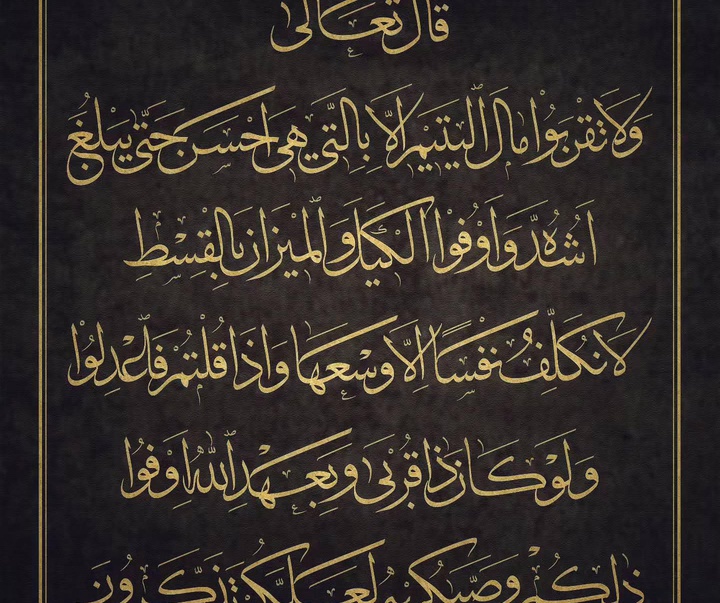 قال تعالى
وَلَا تَقْرَبُوا مَالَ الْيَتِيمِ إِلَّا بِالَّتِي هِيَ أَحْسَنُ حَتَّىٰ يَبْلُغَ
أَشُدَّهُ وَأَوْفُوا الْكَيْلَ وَالْمِيزَانَ بِالْقِسْطِ
لَا نُكَلِّفُ نَفْسًا إِلَّا وُسْعَهَا وَإِذَا قُلْتُمْ فَاعْدِلُوا
وَلَوْ كَانَ ذَا قُرْبَىٰ وَبِعَهْدِ اللَّهِ أَوْفُوا
ذَٰلِكُمْ وَصَّاكُمْ بِهِ لَعَلَّكُمْ تَذَكَّرُونَ